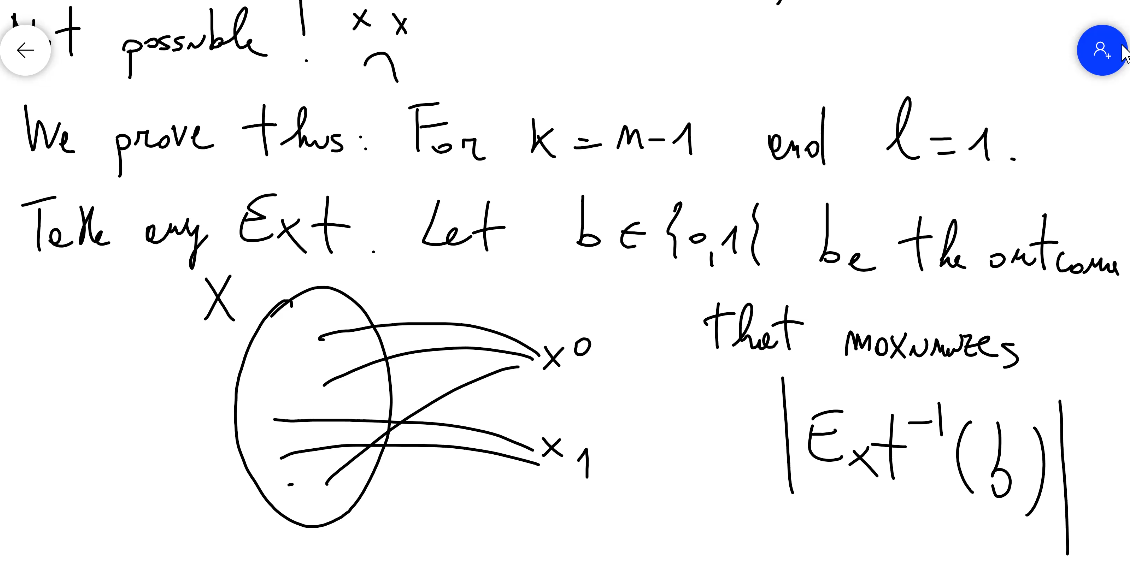 Not possible! x x
We prove this: For k = n-1 and l = 1.
Take any Ext. Let b ∈ {0,1} be the outcome
that maximizes
X
x 0
x 1
|Ext⁻¹(b)|